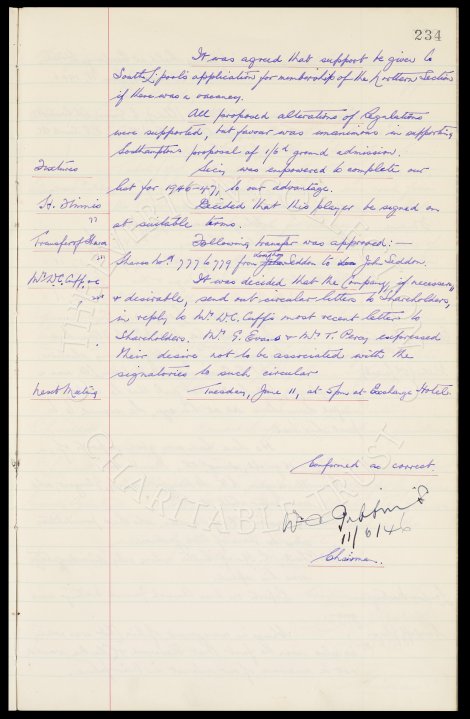 234
It was agreed that support be given to
South L'pool's application for membership of the Northern Section
if there was a vacancy.
All proposed alterations of Regulations
were supported, but favour was unanimous in supporting
Southampton's proposal of 1/6d ground admission.
Fixtures
Secy was empowered to complete our
list for 1946-47, to our advantage.
H.
Decided that this player be signed on
at suitable terms.
Transfer of Shares
Following transfer was approved:—
Shares Nos 777 to 779 from Seddon to John Seddon.
Mr W.C. Cuff,
It was decided that the Company, if necessary
& desirable, send out circular letters to Shareholders,
in reply to Mr W.C. Cuff's most recent letters to
Shareholders. Mr G. Evans & Mr T. Percy expressed
their desire not to be associated with the
signatories to such circular
Next Meeting
Tuesday, June 11, at 5pm at Exchange Hotel.
Confirmed as correct.
11/6/46
Chairman.
CHARITABLE TRUST